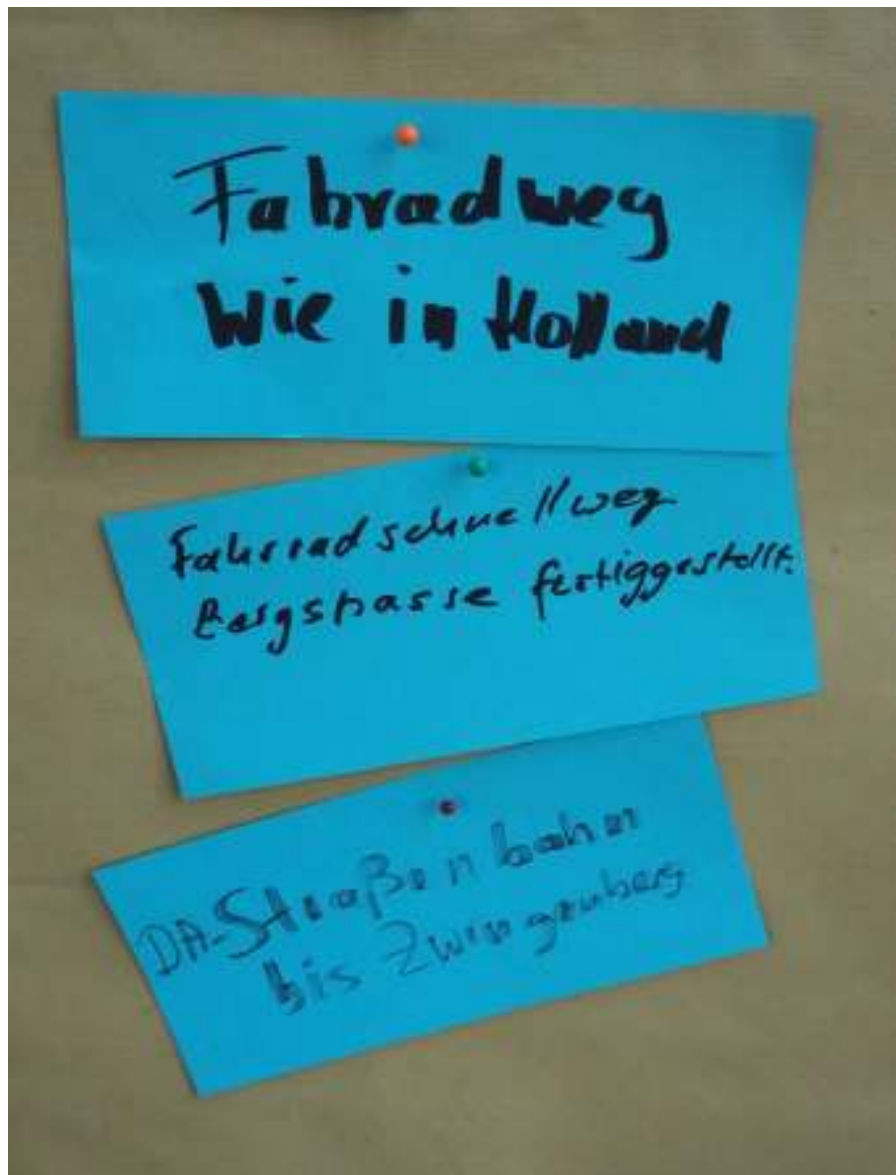 Fahradweg
wie in Holland
Fahrradschnellweg
Bergstrasse fertiggestellt.
DA-Straßenbahn
bis Zwingenberg